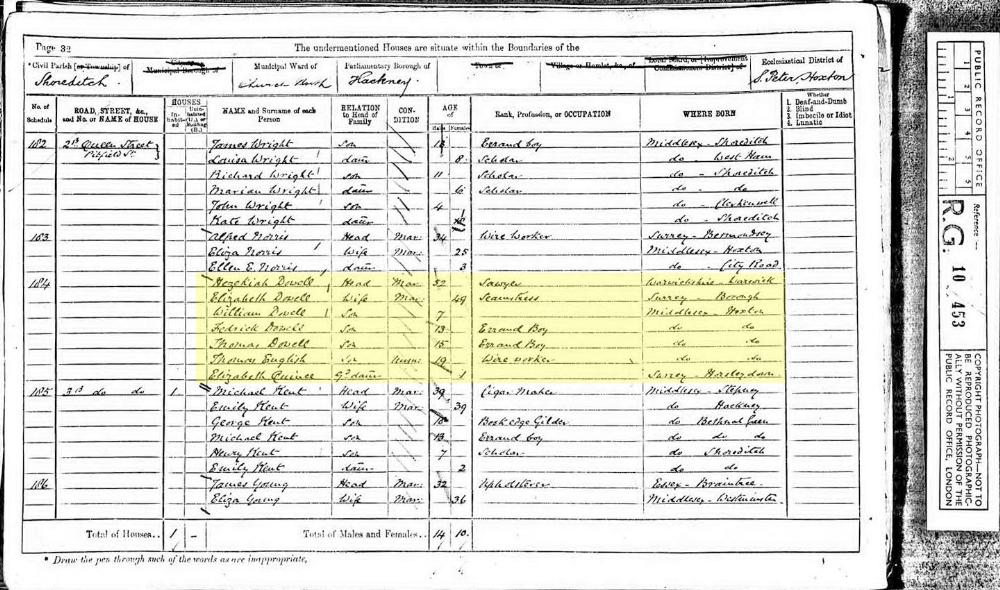 Page 32
The undermentioned Houses are situate within the Boundaries of the
*Civil Parish [or Township] of Municipal Borough of Municipal Ward of Parliamentary Borough of Town of Village or Hamlet, &c., of Local Board, or [Improvement Commissioners District] of Ecclesiastical District of
Shoreditch Church Hackney S. Peter Hoxton
No. of Schedule ROAD, STREET, &c., and No. or NAME of HOUSE HOUSES Inhabited Uninhabited (U.) or Building (B.) NAME and Surname of each Person RELATION to Head of Family CONDITION AGE of Males Females Rank, Profession, or OCCUPATION WHERE BORN Whether 1. Deaf-and-Dumb 2. Blind 3. Imbecile or Idiot 4. Lunatic
182 Queen Street James Wright Son 13 Errand boy Middlesex - Shoreditch
Pitfield St. Louisa Wright daur 8 Scholar do - West Ham
Richard Wright son 11 Scholar do - Shoreditch
Marian Wright daur 6 Scholar do - do
John Wright son 4 do - Clerkenwell
Kate Wright daur do - Shoreditch
183 Alfred Norris Head Mar. 34 Wire Worker Surrey - Bermondsey
Eliza Norris Wife Mar. 25 Middlesex - Hoxton
Ellen E. Norris daur 3 do - City Road
184 Hezekiah Dowell Head Mar. 52 Sawyer Warwickshire - Warwick
Elizabeth Dowell Wife Mar. 49 Seamstress Surrey - Borough
William Dowell Son 7 Middlesex - Hoxton
Fedrick Dowell Son 13 Errand Boy do do
Thomas Dowell Son 15 Errand Boy do do
Thomas English Son 19 Wire worker do do
Elizabeth Quince Gd daur 1 Surrey - Horsleydown
185 3 do do 1 Michael Kent Head Mar. 39 Cigar Maker Middlesex - Stepney
Emily Kent Wife Mar. 39 do Hackney
George Kent Son Book edge Gilder do Bethnal Green
Michael Kent Son 13 Errand boy do do do
Henry Kent Son 7 Scholar do Shoreditch
Emily Kent daur 2 do do
186 James Young Head Mar. 32 Upholsterer Essex - Braintree
Eliza Young Wife Mar. 36 Middlesex - Westminster
Total of Houses.. 1 - Total of Males and Females.. 14 10
* Draw the pen through such of the words as are inappropriate.
PUBLIC RECORD OFFICE
Reference:-
R.G. 10 453
COPYRIGHT PHOTOGRAPH - NOT TO BE REPRODUCED PHOTOGRAPHICALLY WITHOUT PERMISSION OF THE PUBLIC RECORD OFFICE, LONDON